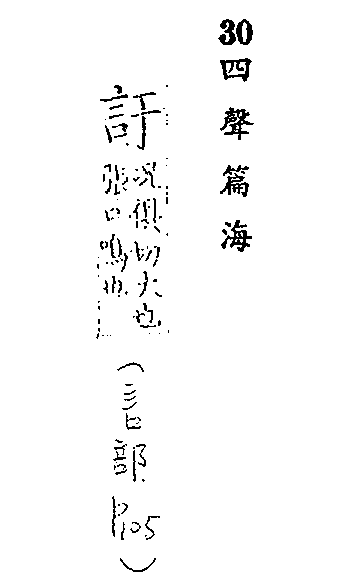 30四聲篇海
訏
況俱切大也
張口鳴也
(言部 P.105)